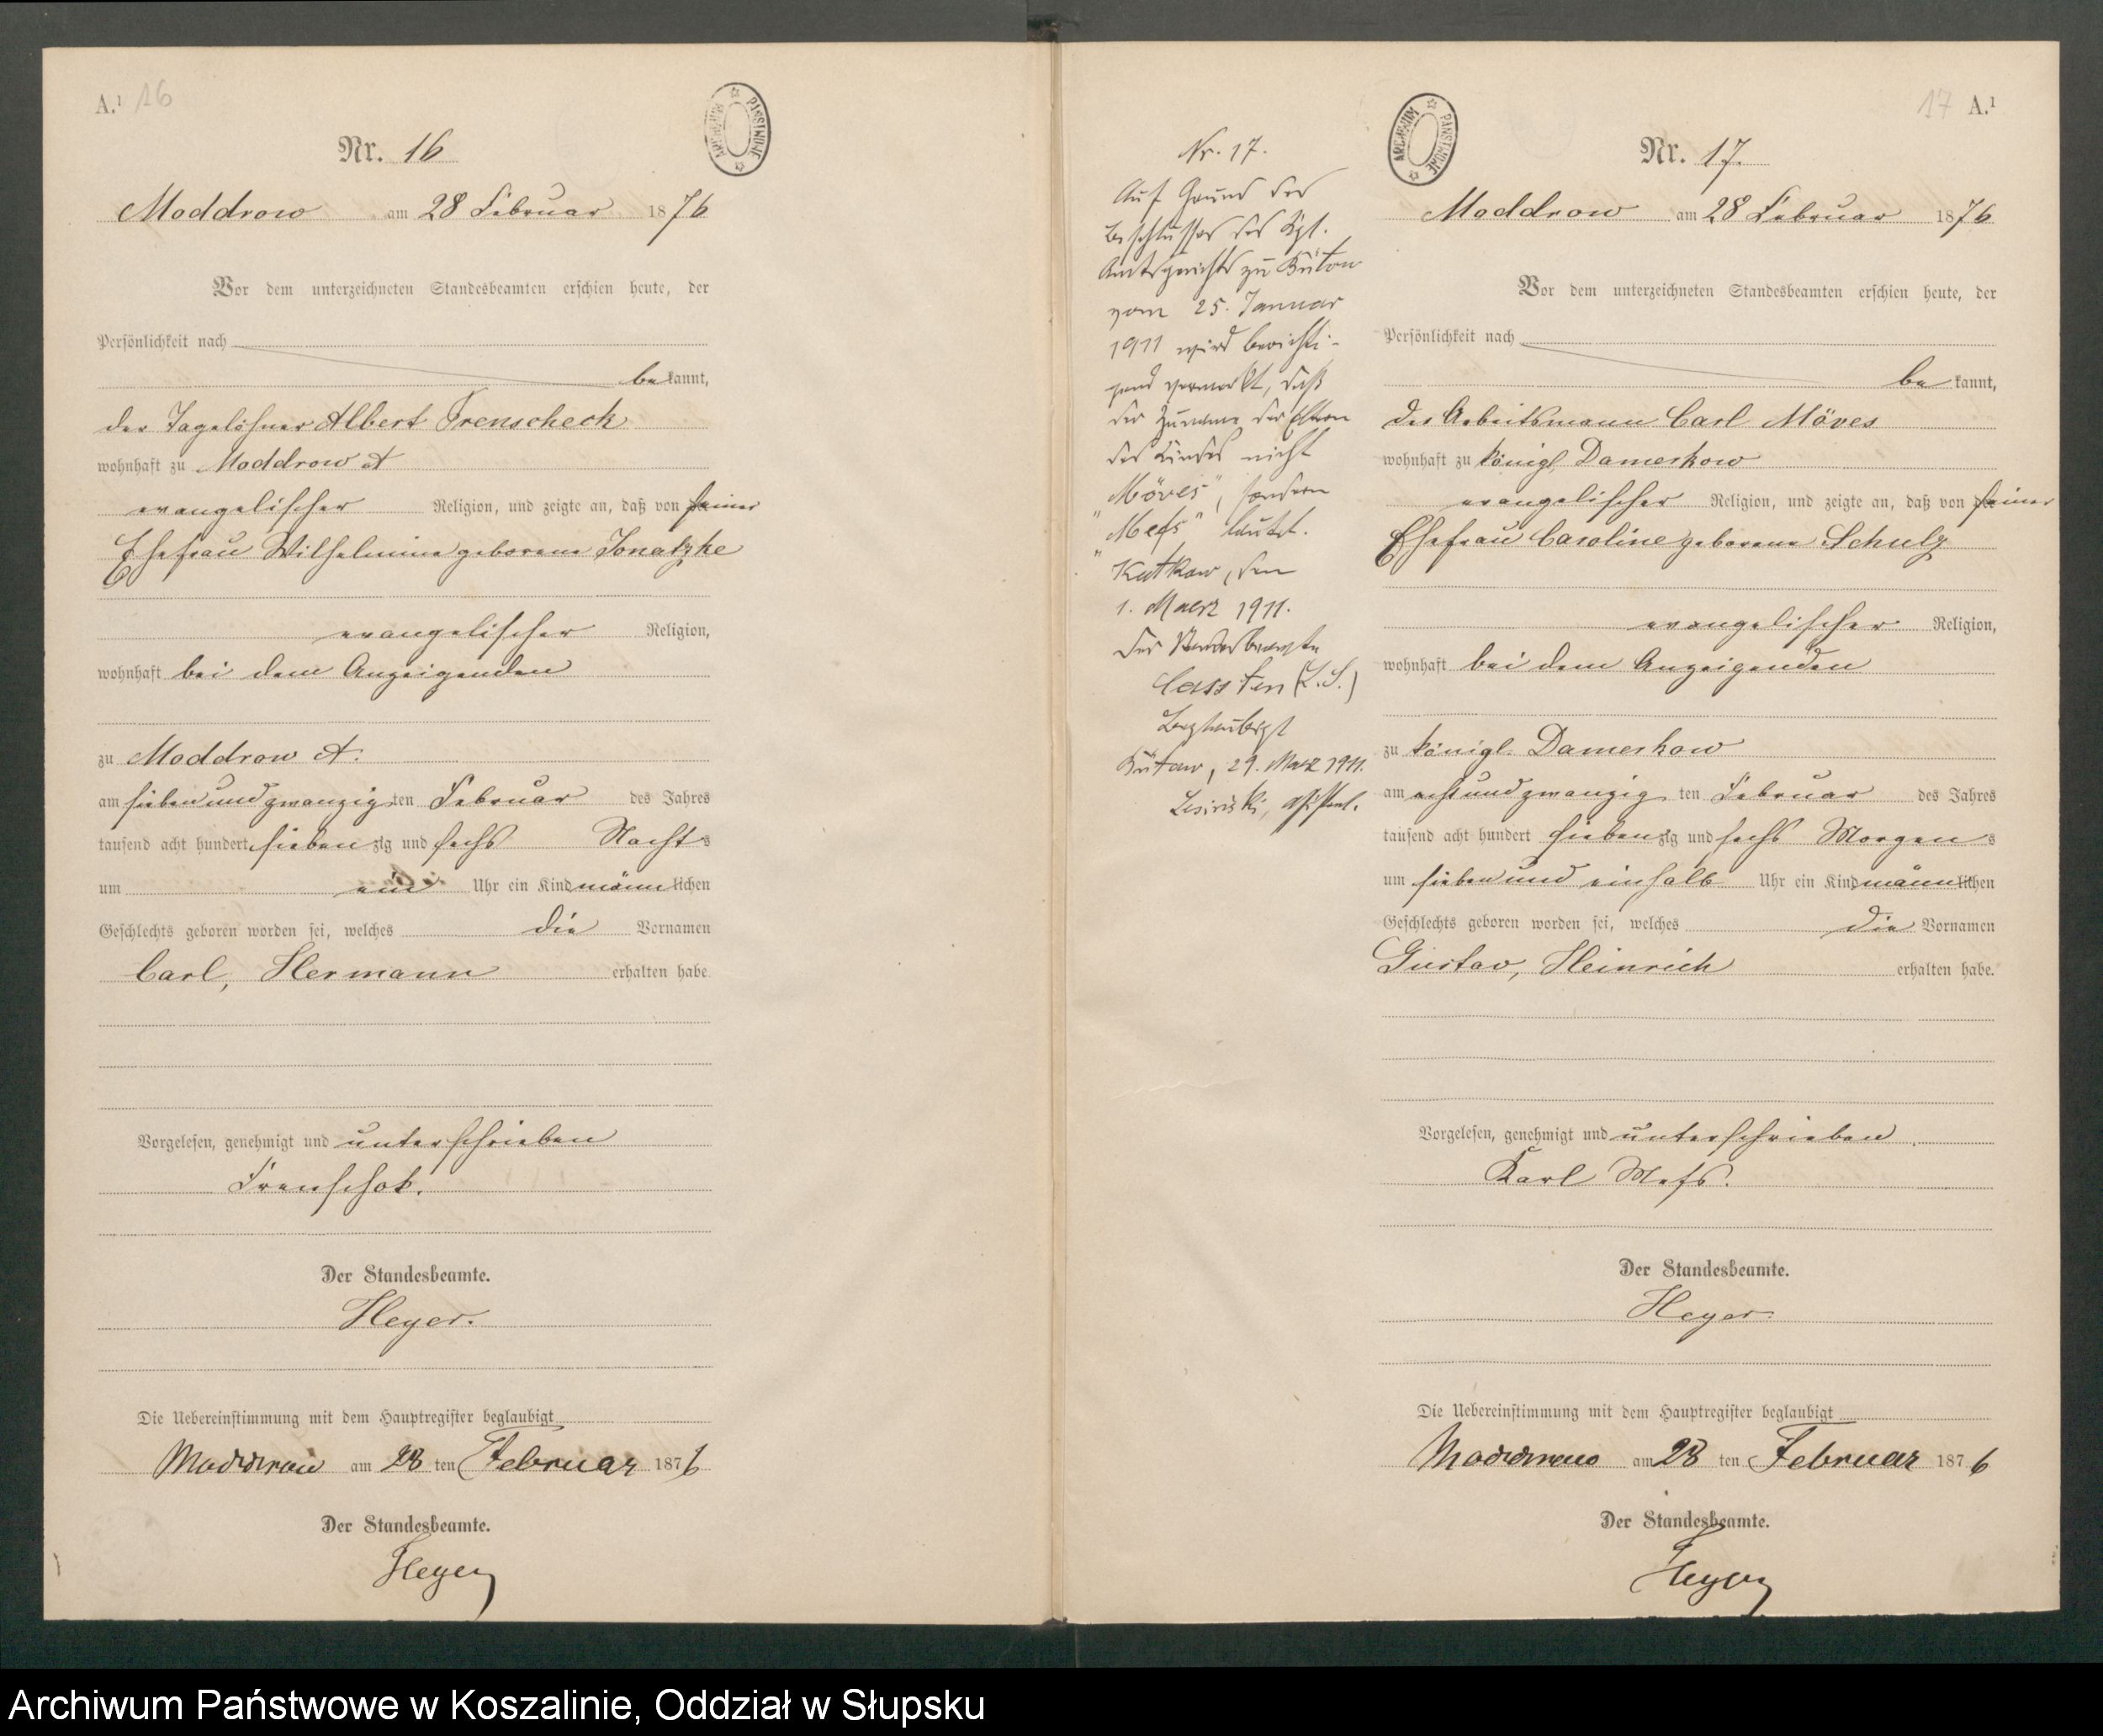 A.¹ 16
ARCHIWUM PAŃSTWOWE
Nr. 16
Moddrow am 28 Februar 1876
Vor dem unterzeichneten Standesbeamten erschien heute, der
Persönlichkeit nach
bekannt,
der Tagelöhner Albert Frenscheck
wohnhaft zu Moddrow A
evangelischer Religion, und zeigte an, daß von seiner
Ehefrau Wilhelmine geborene Jonatzke
evangelischer Religion,
wohnhaft bei dem Anzeigenden
zu Moddrow A.
am siebenundzwanzigsten Februar des Jahres
tausend acht hundert siebenzig und sechs Nachts
um ein Uhr ein Kind männlichen
Geschlechts geboren worden sei, welches die Vornamen
Carl, Hermann erhalten habe.
Vorgelesen, genehmigt und unterschrieben
Frenschok.
Der Standesbeamte.
Heyer.
Die Uebereinstimmung mit dem Hauptregister beglaubigt
Moddrow am 28 ten Februar 1876
Der Standesbeamte.
Heyer
Nr. 17.
Auf Grund des
Beschlusses des Kgl.
Amtsgerichts zu Bütow
vom 25. Januar
1911 wird berichti-
gend vermerkt, daß
der Zuname der Eltern
des Kindes nicht
„Möves", sondern
„Mefs" lautet.
Kutkow, den
1. Maerz 1911.
Der Standesbeamte
Carsten (L.S.)
Beglaubigt
Bütow, 29. März 1911.
Assistent.
17 A.¹
ARCHIWUM PAŃSTWOWE
Nr. 17.
Moddrow am 28 Februar 1876
Vor dem unterzeichneten Standesbeamten erschien heute, der
Persönlichkeit nach
bekannt,
der Arbeitsmann Carl Möves
wohnhaft zu königl. Damerkow
evangelischer Religion, und zeigte an, daß von seiner
Ehefrau Caroline geborene Schulz
evangelischer Religion,
wohnhaft bei dem Anzeigenden
zu königl. Damerkow
am achtundzwanzig ten Februar des Jahres
tausend acht hundert siebenzig und sechs Morgens
um sieben und einhalb Uhr ein Kind männlichen
Geschlechts geboren worden sei, welches die Vornamen
Gustav, Heinrich erhalten habe.
Vorgelesen, genehmigt und unterschrieben
Karl Mefs.
Der Standesbeamte.
Heyer
Die Uebereinstimmung mit dem Hauptregister beglaubigt
Moddrow am 28 ten Februar 1876
Der Standesbeamte.
Heyer
Archiwum Państwowe w Koszalinie, Oddział w Słupsku